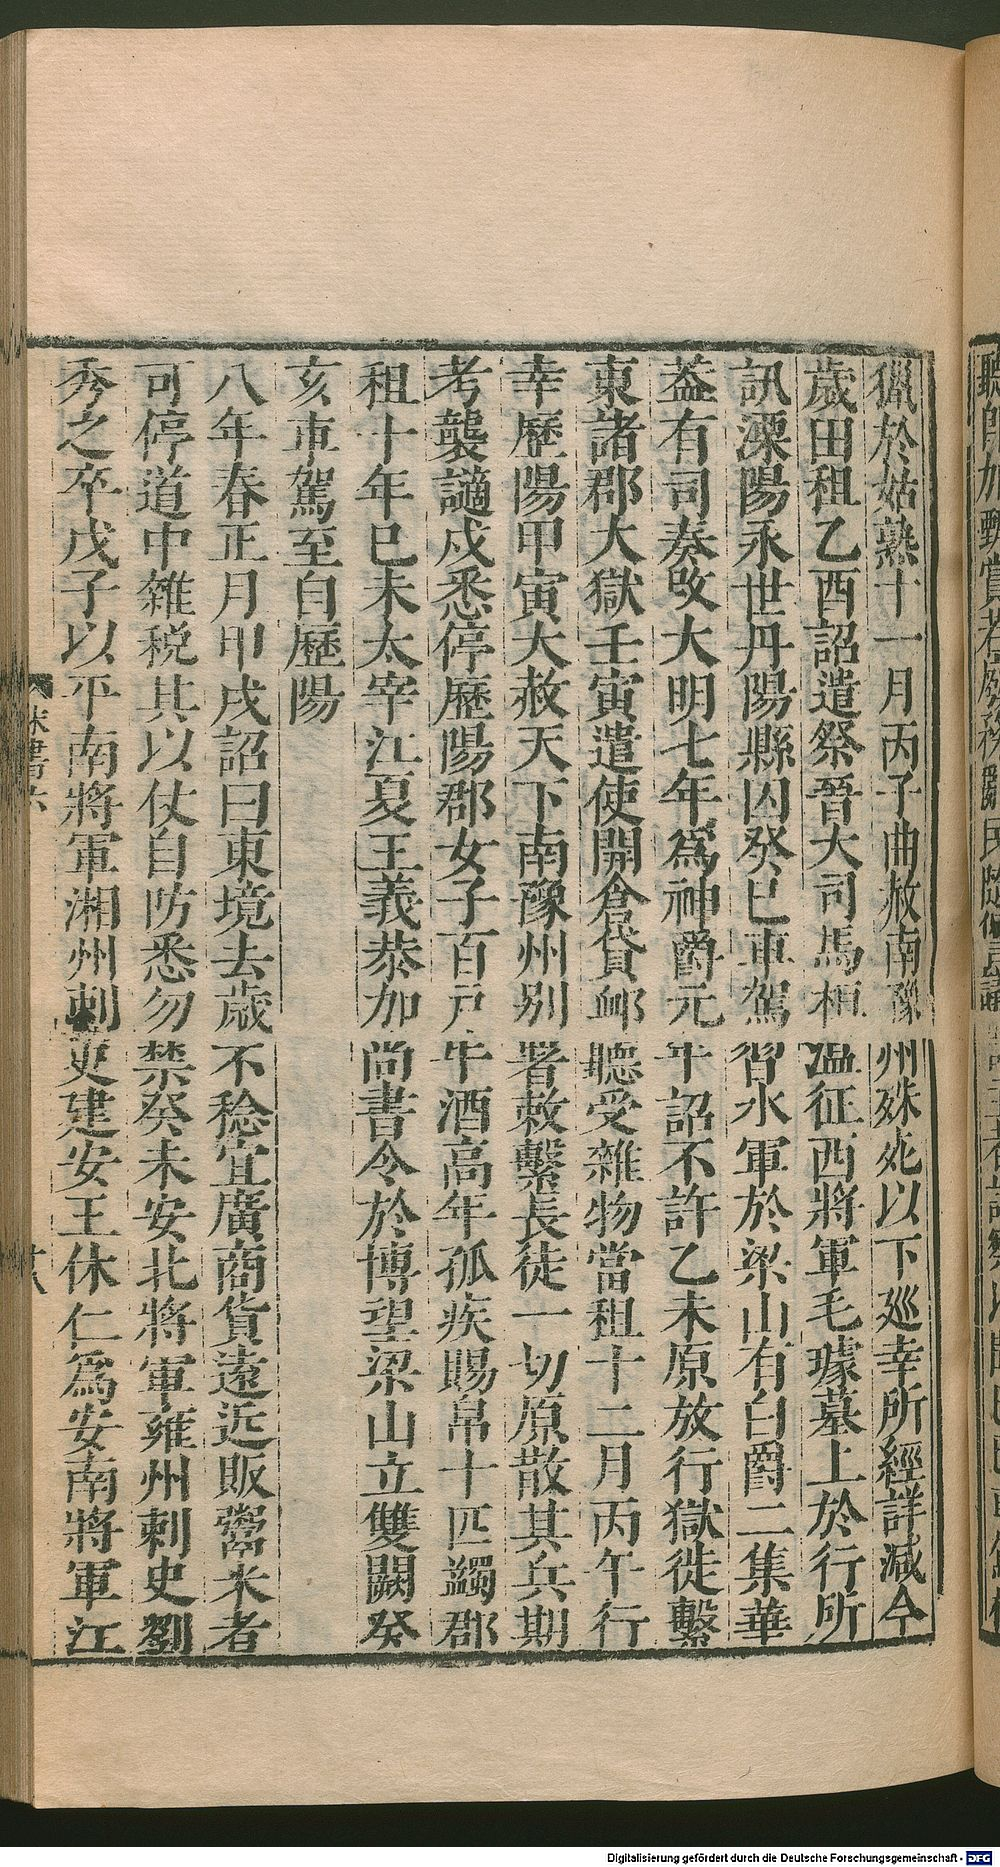 獵於姑熟十一月丙子曲赦南豫州殊死以下廵幸所經詳減今
歲田租乙酉詔遣祭晉大司馬桓溫征西將軍毛璩墓上於行所
訊溧陽永世丹陽縣囚癸巳車駕習水軍於梁山有白爵二集華
蓋有司奏改大明七年爲神爵元年詔不許乙未原放行獄徒繫
東諸郡大獄壬寅遣使開倉貸䘏聽受雜物當租十二月丙午行
幸歷陽甲寅大赦天下南豫州别署敕繫長徒一切原散其兵期
考襲讁戍悉停歷陽郡女子百戸牛酒高年孤疾賜帛十匹蠲郡
租十年已未太宰江夏王義恭加尚書令於博望梁山立雙闕癸
亥車駕至自歷陽
八年春正月甲戌詔曰東境去歲不稔宜廣商貨遠近販鬻米者
可停道中雜税其以仗自防悉勿禁癸未安北將軍雍州刺史劉
秀之卒戊子以平南將軍湘州刺史建安王休仁爲安南將軍江
宋書六
十八
Digitalisierung gefördert durch die Deutsche Forschungsgemeinschaft - DFG